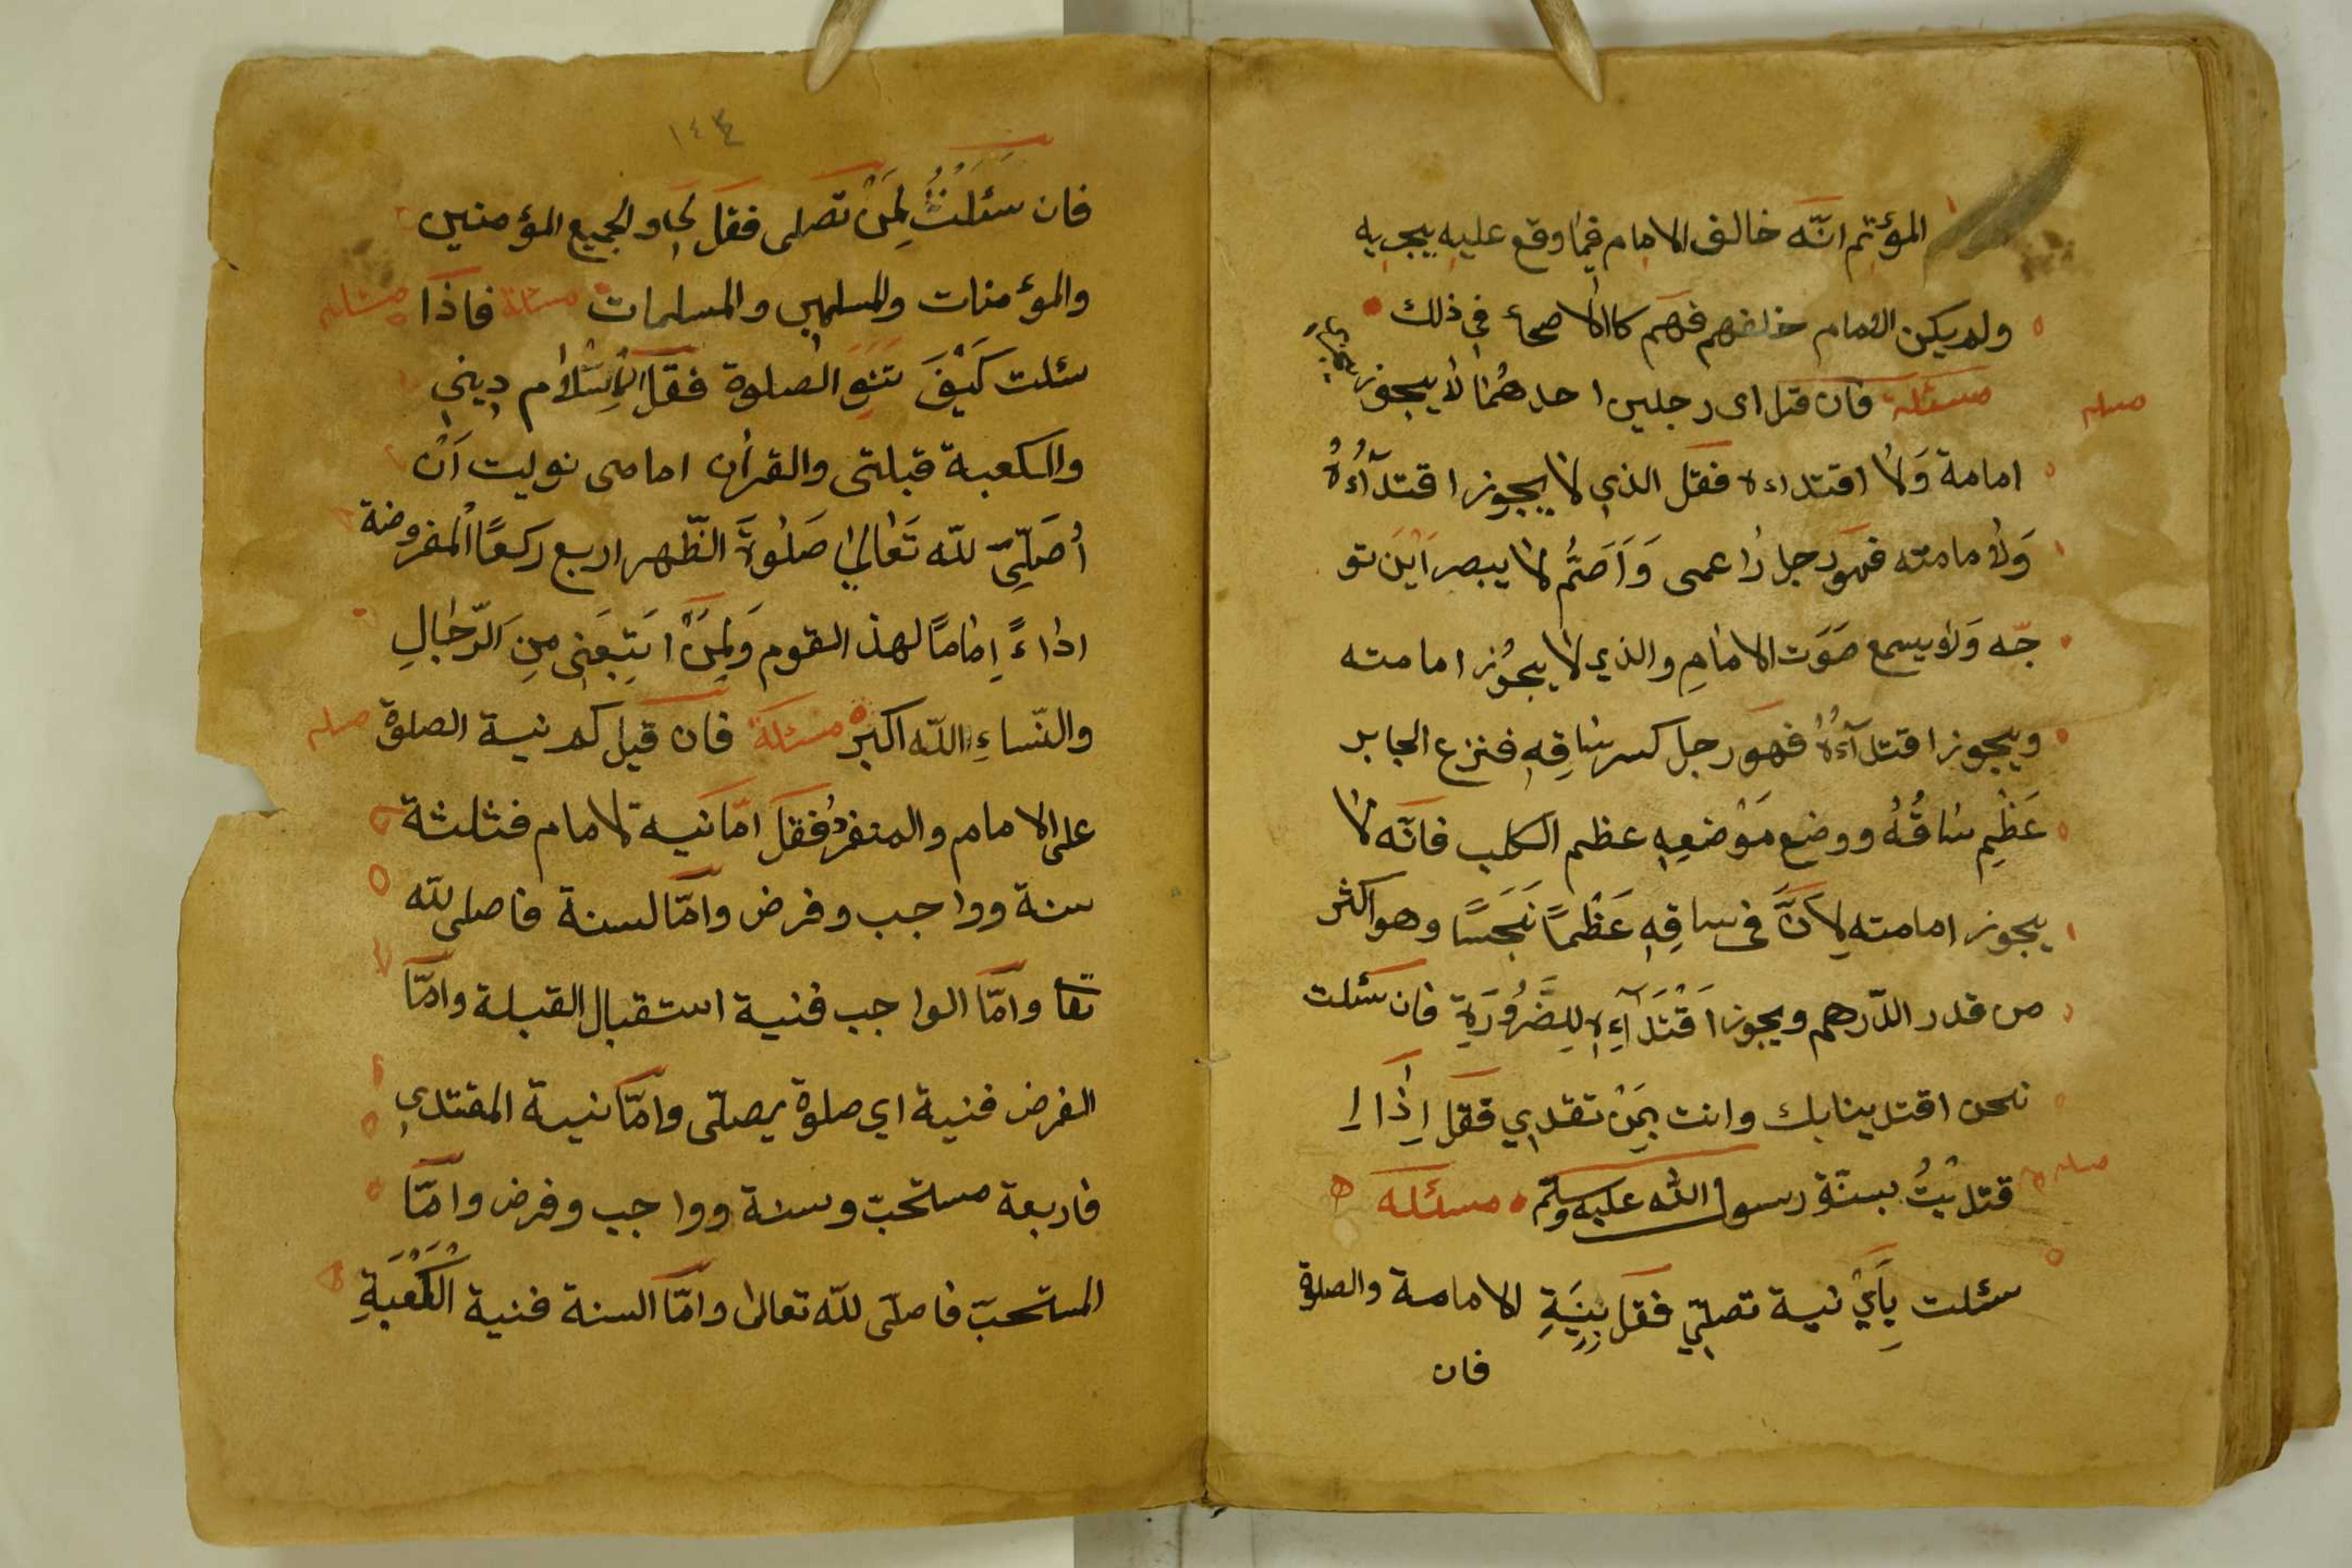 المؤتم انّه خالف الامام فيما وقع عليه يجب به
ولم يكن الامام خلفهم فهم كالاصحاء في ذلك
مسئلة فان قتل اى رجلين احدهما لا يجوز
امامة وَلا اقتداءه فقل الذي لا يجوز اقتدآءُهُ
وَلا مامته فهو رجل اعمى وَاَصَمُّ لا يبصر اَيْنَ تو
جّه وَلا يسمع صَوَت الامامِ والذي لا يجُوز امامته
ويجوز اقتدآءُهُ فهو رجل كسر ساقِهِ فنزع الجابر
عَظْمِ ساقُهُ ووضع مَوْضعِهِ عظم الكلب فانّه لا
يجوز امامته لِاَنَّ فى ساقِهِ عَظْمًا نَجَسًا وهو اكثر
من قدر الدّرهم ويجوز اَقْتَدَآءِهِ لِلضَّرُوُرَةِ فان سئلت
نحن اقتدينا بك وانت بِمَنْ تقدي فقل اِذَا اِ
قتديْتُ بسنّة رسول الله عليه وسلّم مسئلة
سئلت بِاَيِّ نية تصلّي فقل بِنِيَةِ الامامة والصلوة
فان
١٤٣
فان سَئَلْتَ لِمَنْ تَصَلى فقل لى ولجميع المؤمنين
والمؤمنات والمسلمين والمسلمات مسئلة فاذا
سئلت كَيْفَ تَنَوِ الصلوة فقل الاسْلام ديني
والكعبة قبلتى والقران امامى نويت اَنْ
اُصَلِّيَ للّه تَعَالىٰ صَلوٰةَ الظّهر اربع ركعًا المفروضة
اداءً اِمامًا لهذ القوم وَلِمَنْ اتَبَعَنى مِنِ الرّجالِ
والنّساءِ اللّه اكبر مسئلة فان قيل كم نية الصلوة
على الامام والمنفرد فقل امّا نية لامام فثلثة
سنة وواجب وفرض وامّا لسنة فاصلى للّه
تعا وامّا الواجب فنية استقبال القبلة وامّا
الفرض فنية اي صلوة يصلّى وامّا نية المقتدي
فاربعة مستحبّ وسنة وواجب وفرض وامّا
المستحبّ فاصلّى للّه تعالى وامّا السنة فنية الكَعْبَةِ